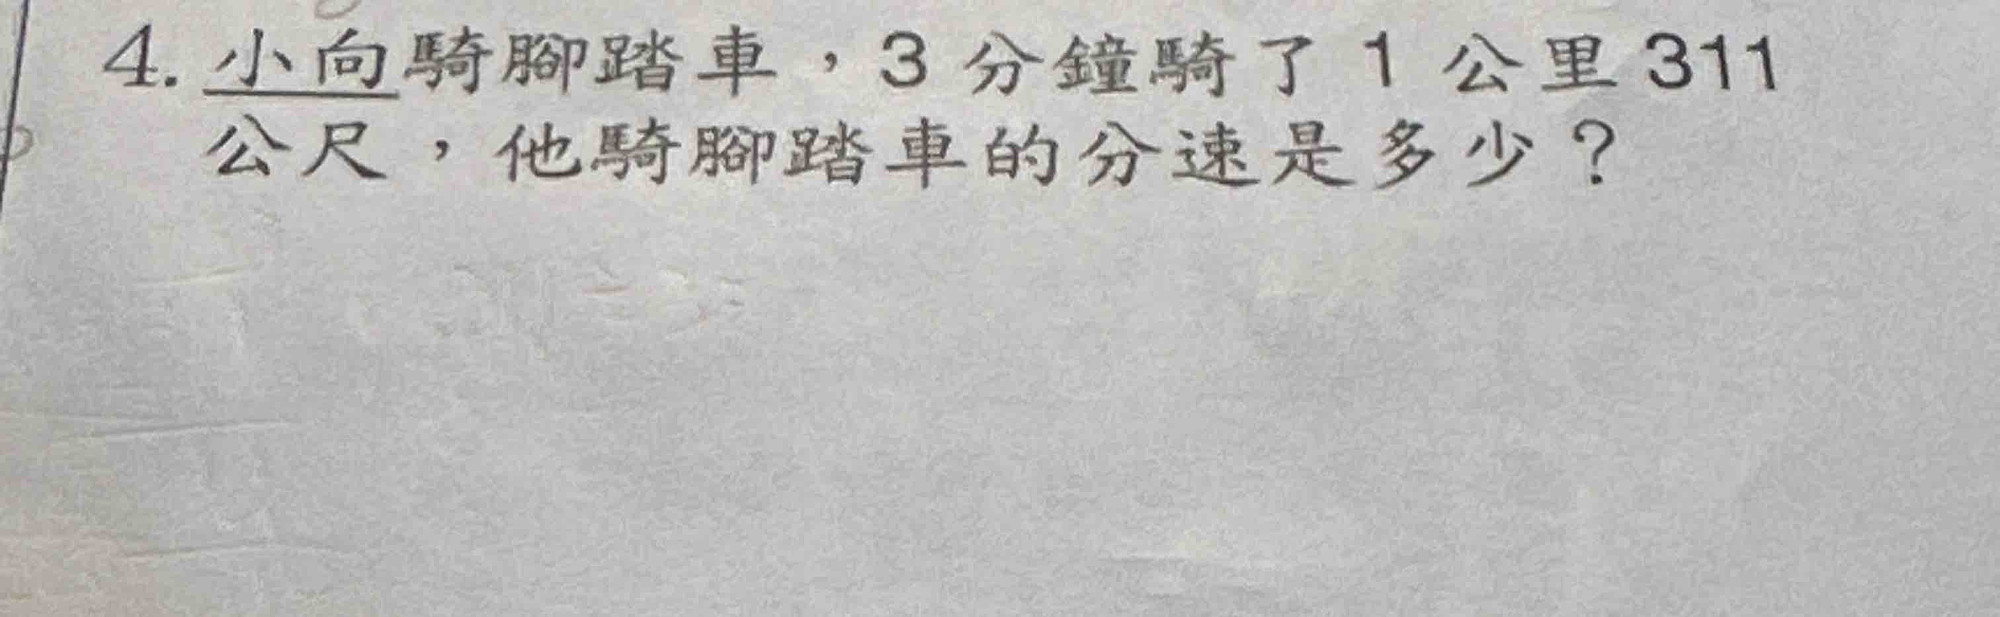 4. 小向騎腳踏車，3 分鐘騎了 1 公里 311
公尺，他騎腳踏車的分速是多少？